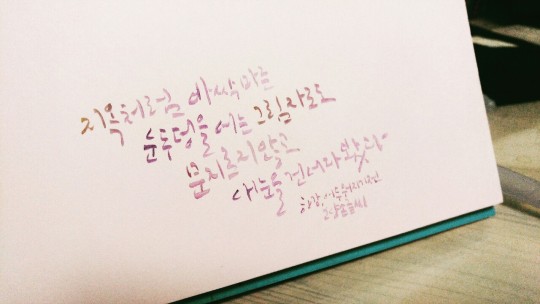 지옥처럼 바싹마른
눈두덩을 에는 그림자로도
문지르지않고
내눈을 건너다 봤다